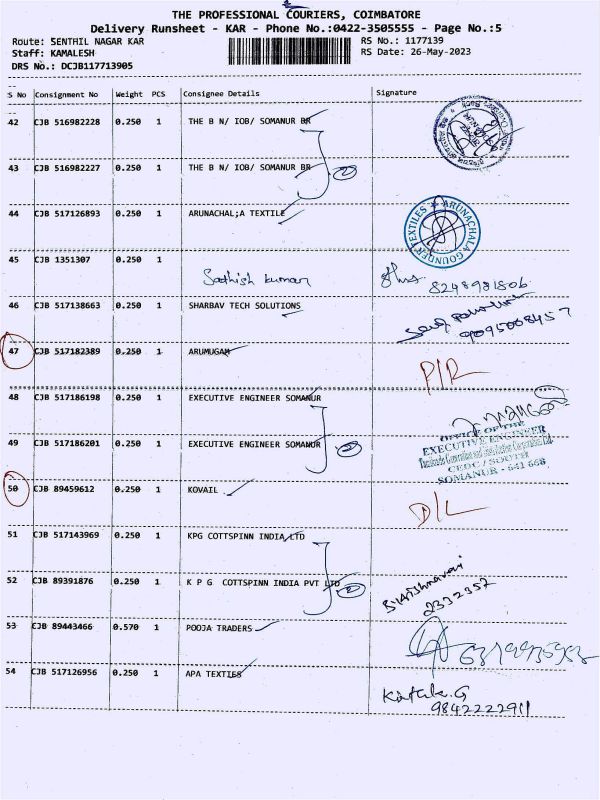 THE PROFESSIONAL COURIERS, COIMBATORE
Delivery Runsheet - KAR - Phone No.:0422-3505555 - Page No.:5
Route: SENTHIL NAGAR KAR
RS No.: 1177139
Staff: KAMALESH
RS Date: 26-May-2023
DRS No.: DCJB117713905
S No Consignment No Weight PCS Consignee Details Signature
42 CJB 516982228 0.250 1 THE B N/ IOB/ SOMANUR BR
43 CJB 516982227 0.250 1 THE B N/ IOB/ SOMANUR BR
44 CJB 517126893 0.250 1 ARUNACHAL;A TEXTILE
ARUNACHALA GOUNDER TEXTILES
45 CJB 1351307 0.250 1
Sathish kumar
8248981806
46 CJB 517138663 0.250 1 SHARBAV TECH SOLUTIONS
9095008457
47 CJB 517182389 0.250 1 ARUMUGAM
P/R
48 CJB 517186198 0.250 1 EXECUTIVE ENGINEER SOMANUR
OFFICE OF THE
EXECUTIVE ENGINEER
49 CJB 517186201 0.250 1 EXECUTIVE ENGINEER SOMANUR
CEDC / SOUTH
SOMANUR - 641 668
50 CJB 89459612 0.250 1 KOVAIL
D/L
51 CJB 517143969 0.250 1 KPG COTTSPINN INDIA LTD
52 CJB 89391876 0.250 1 K P G COTTSPINN INDIA PVT LTD
2332352
53 CJB 89443466 0.570 1 POOJA TRADERS
54 CJB 517126956 0.250 1 APA TEXTIES
9842222911